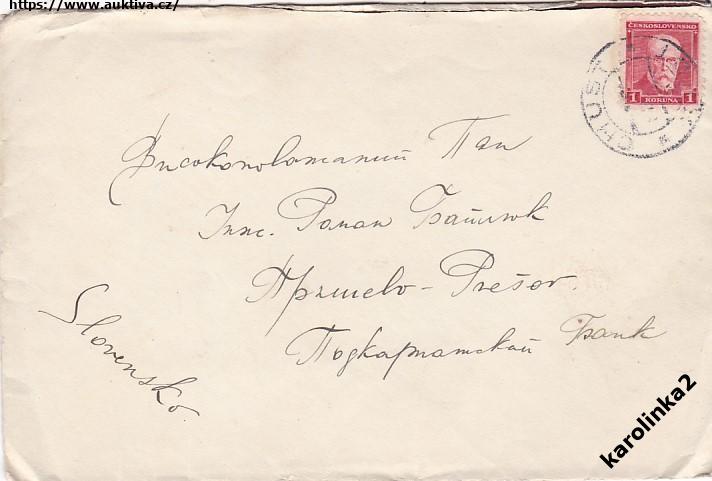 https://www.auktiva.cz/
ČESKOSLOVENSKO
1 1
KORUNA
CHUST
Високоповажаний Пан
Інж. Роман
Пряшево - Prešov
Подкарпатский Банк
Slovensko.
karolinka2